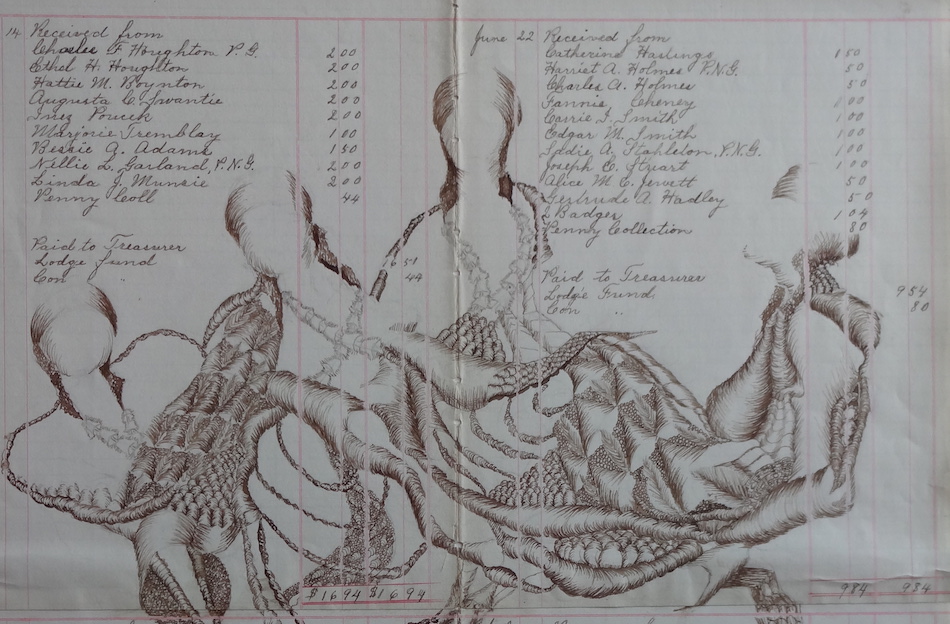 14 Received from
Charles F Houghton P. G. 2 00
Ethel H. Houghton 2 00
Hattie M. Boynton 2 00
Augusta C. Swantie 2 00
Inez Poucek 2 00
Marjorie Tremblay 1 00
Bessie A. Adams 1 50
Nellie L. Garland, P.N.G. 2 00
Linda J. Munsie 2 00
Penny Coll 44
Paid to Treasurer
Lodge fund
Con " 44
$16 94 $16 94
June 22 Received from
Catherine Hastings 1 50
Harriet A. Holmes P.N.G. 50
Charles A. Holmes 50
Fannie Cheney 1 00
Carrie J. Smith 1 00
Edgar M. Smith 1 00
Addie A. Stahleton, P.N.G. 1 00
Joseph C. Stuart 1 00
Alice M. C. Jewett 50
Gertrude A. Hadley 50
2 Badges 1 04
Penny Collection 80
Paid to Treasurer
Lodge Fund. 9 54
Con " 80
9 84 9 34